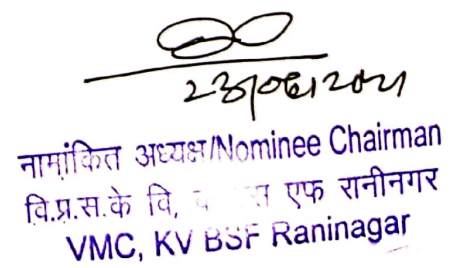 नामांकित अध्यक्ष/Nominee Chairman
वि.प्र.स.के वि, एफ रानीनगर
VMC, KV BSF Raninagar